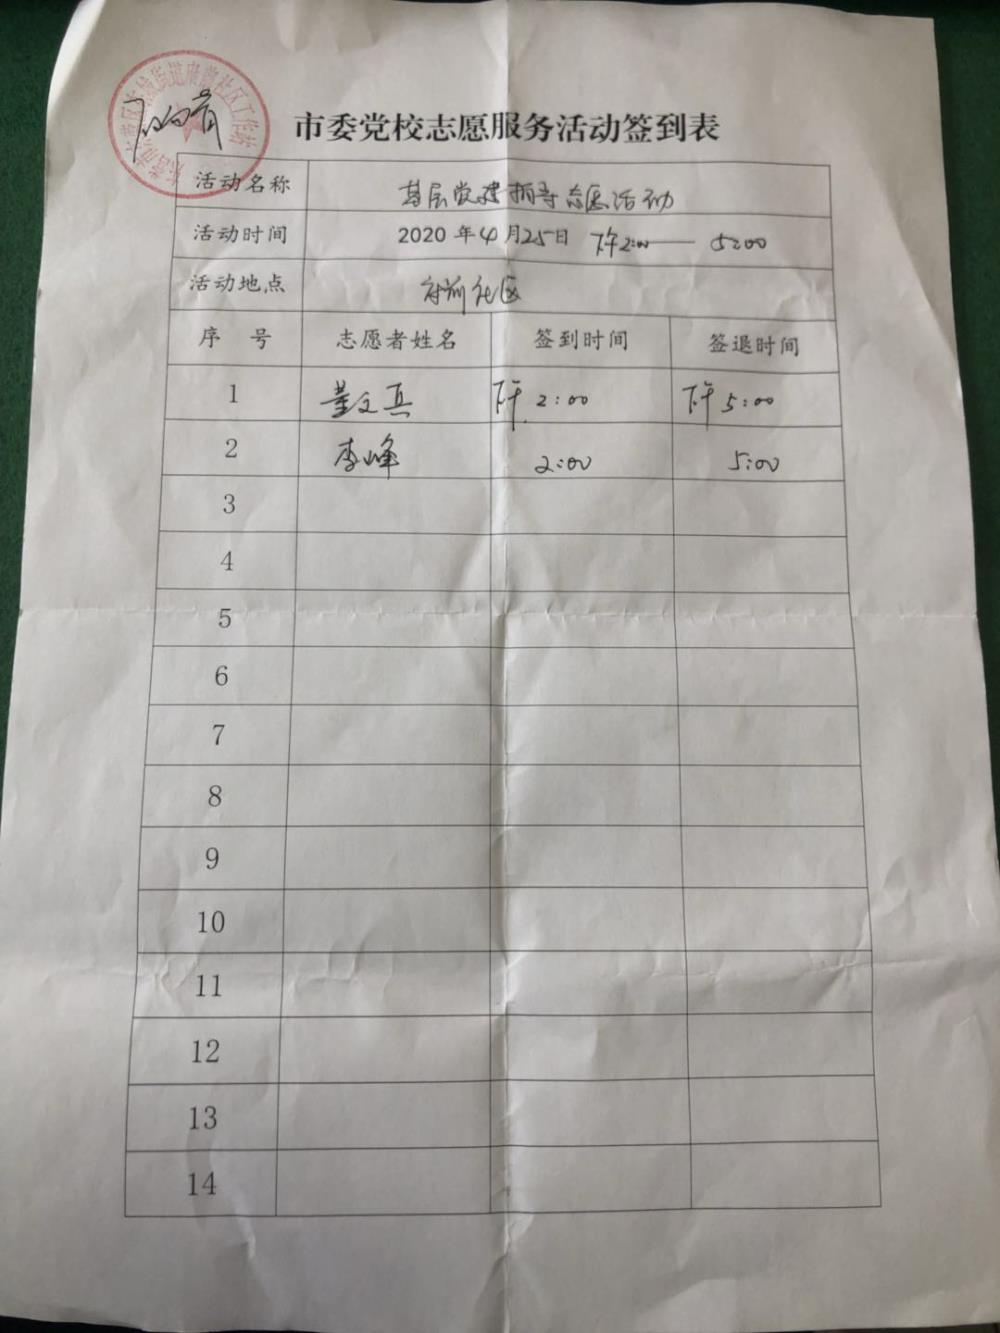 市委党校志愿服务活动签到表
活动名称 基层党建指导志愿活动
活动时间 2020年4月25日 下午2:00——5:00
活动地点 府前社区
序 号 志愿者姓名 签到时间 签退时间
1 董文兵 下午2:00 下午5:00
2 李峰 2:00 5:00
3
4
5
6
7
8
9
10
11
12
13
14